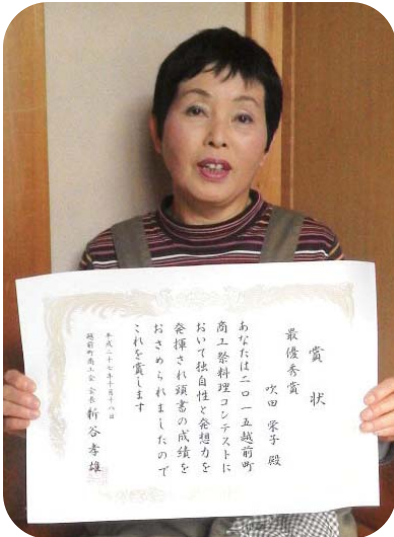 賞状
最優秀賞
吹田 栄子 殿
あなたは二〇一五越前町
商工祭料理コンテストに
おいて独自性と発想力を
発揮され頭書の成績を
おさめられましたので
これを賞します
平成二十七年十月十八日
越前町商工会 会長 新谷孝雄